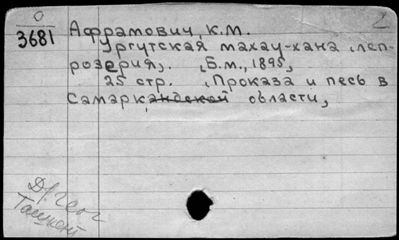 О
3681
2
Афрамович, К.М.
Ургутская махау-хана (леп-
розерия). (Б.м., 1895,
25 стр. (Проказа и песь в
Самаркандской области,
Ташкент